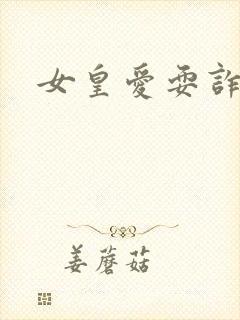 女皇愛耍詐
姜蘑菇